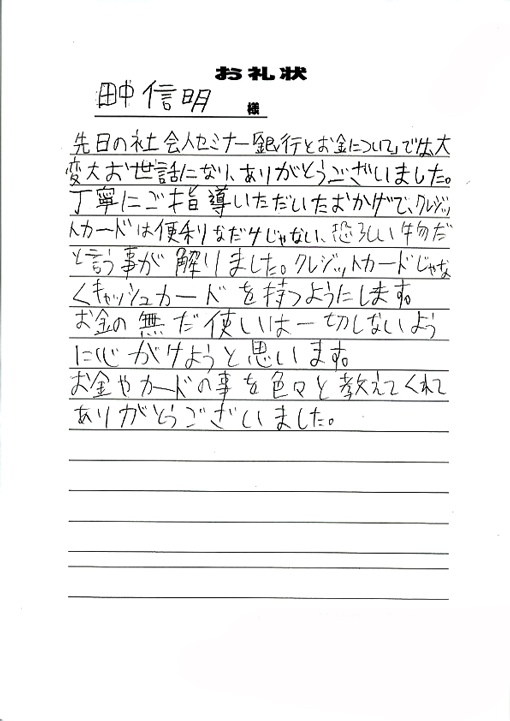 お礼状
田中信明 様
先日の社会人セミナー「銀行とお金について」では、大
変大お世話になり、ありがとうございました。
丁寧にご指導いただいたおかげで、クレジッ
トカードは便利なだけじゃない、恐ろしい物だ
と言う事が解りました。クレジットカードじゃな
くキャッシュカードを持つようにします。
お金の無だ使いは一切しないよう
に心がけようと思います。
お金やカードの事を色々と教えてくれて
ありがとうございました。